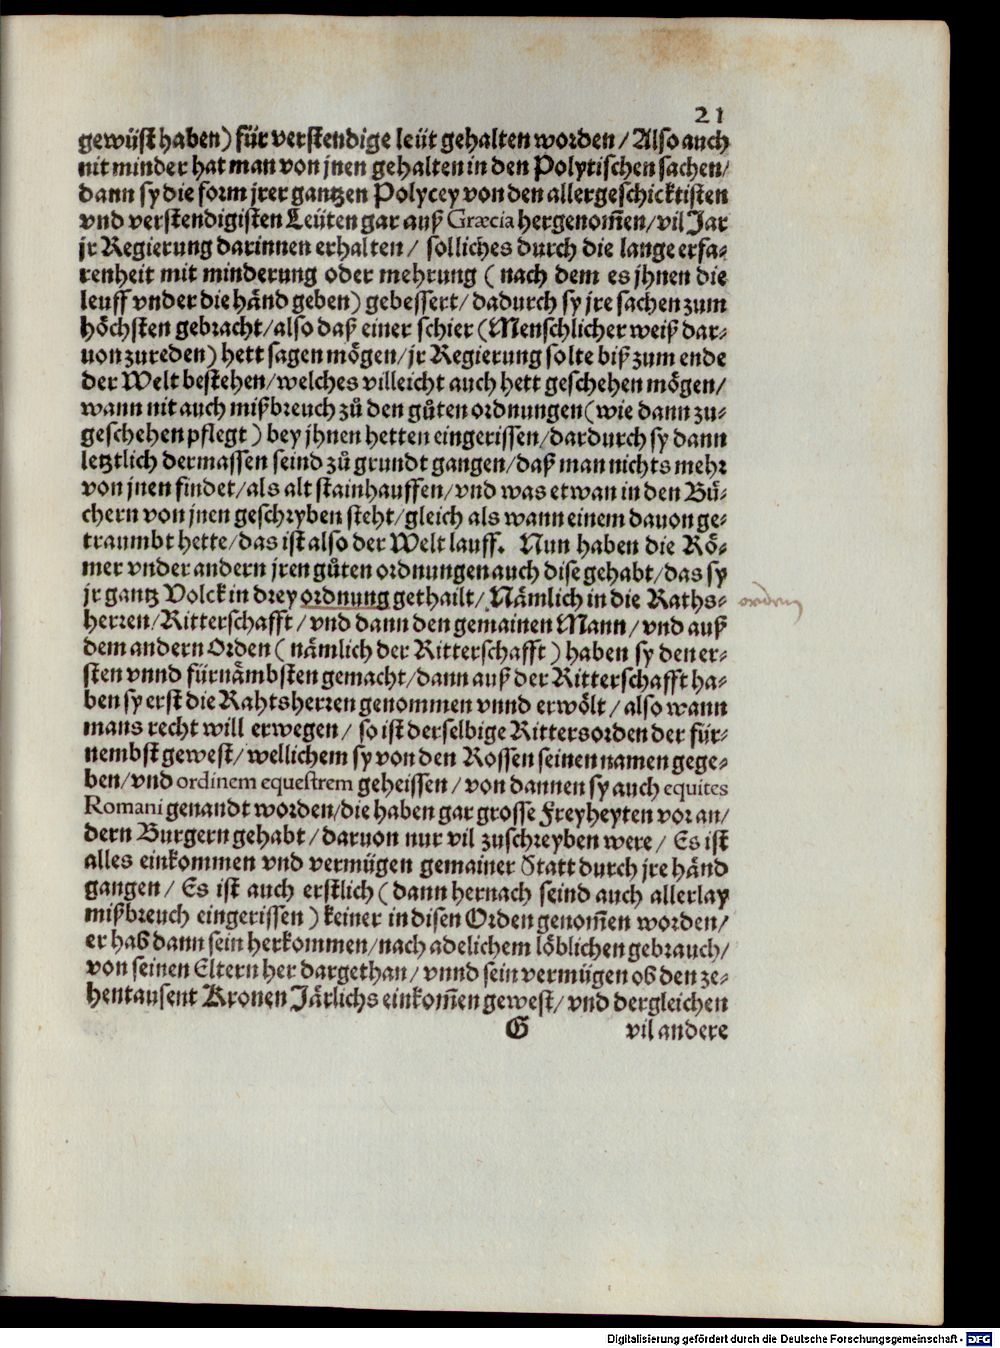 21
gewüst haben) für verstendige leüt gehalten worden / Also auch
nit minder hat man von jnen gehalten in den Polytischen sachen/
dann sy die form jrer gantzen Polycey von den allergeschicktisten
vnd verstendigisten Leüten gar auß Græcia hergenom̃en/ vil Jar
jr Regierung darinnen erhalten / solliches durch die lange erfa⸗
renheit mit minderung oder mehrung ( nach dem es jhnen die
leuff vnder die händ geben) gebessert/ dadurch sy jre sachen zum
höchsten gebracht/ also daß einer schier (Menschlicher weiß dar⸗
uon zureden) hett sagen mögen/ jr Regierung solte biß zum ende
der Welt bestehen/ welches villeicht auch hett geschehen mögen/
wann nit auch mißbreuch zů den gůten ordnungen (wie dann zu⸗
geschehen pflegt ) bey jhnen hetten eingerissen/ dardurch sy dann
letztlich dermassen seind zů grundt gangen/ daß man nichts mehr
von jnen findet/ als alt stainhauffen/ vnd was etwan in den Bü⸗
chern von jnen geschryben steht/ gleich als wann einem dauon ge⸗
traumbt hette/ das ist also der Welt lauff. Nun haben die Rö⸗
mer vnder andern jren gůten ordnungen auch dise gehabt/ das sy
jr gantz Volck in drey ordnung gethailt/ Nämlich in die Raths⸗
orden
herren/ Ritterschafft / vnd dann den gemainen Mann/ vnd auß
dem andern Orden ( nämlich der Ritterschafft ) haben sy den er⸗
sten vnnd fürnämbsten gemacht/ dann auß der Ritterschafft ha⸗
ben sy erst die Rahtsherren genommen vnnd erwölt / also wann
mans recht will erwegen / so ist derselbige Ritters orden der für⸗
nembst gewest/ wellichem sy von den Rossen seinen namen gege⸗
ben/ vnd ordinem equestrem geheissen / von dannen sy auch equites
Romani genandt worden/ die haben gar grosse Freyheyten vor an/
dern Burgern gehabt / daruon nur vil zuschreyben were / Es ist
alles einkommen vnd vermügen gemainer Statt durch jre händ
gangen / Es ist auch erstlich ( dann hernach seind auch allerlay
mißbreuch eingerissen ) keiner in disen Orden genom̃en worden/
er hab dann sein herkommen/ nach adelichem löblichen gebrauch/
von seinen Eltern her dargethan/ vnnd sein vermügen ob den ze⸗
hentausent Kronen Järlichs einkom̃en gewest/ vnd dergleichen
G vil andere
Digitalisierung gefördert durch die Deutsche Forschungsgemeinschaft - DFG